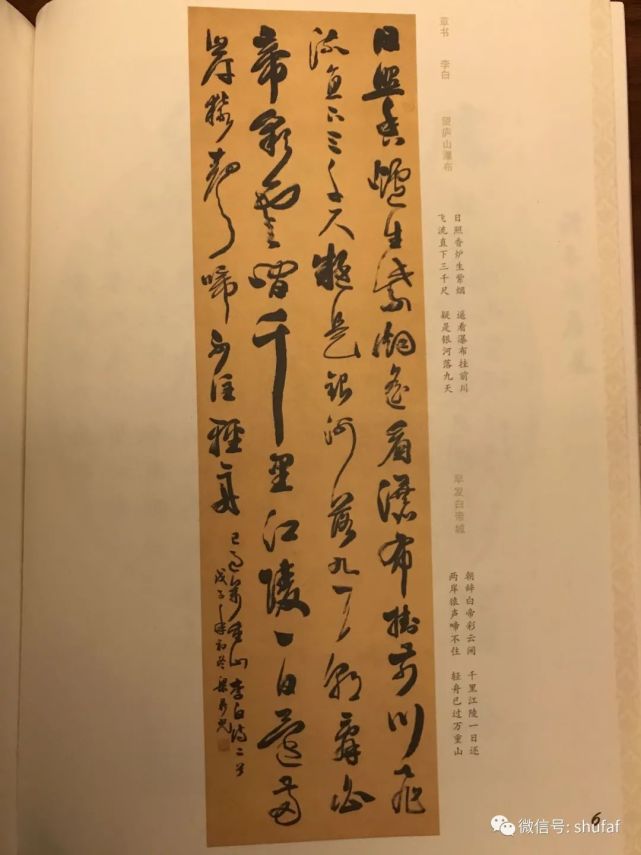 草书 李白 望庐山瀑布
日照香炉生紫烟 遥看瀑布挂前川
飞流直下三千尺 疑是银河落九天
早发白帝城
朝辞白帝彩云间 千里江陵一日还
两岸猿声啼不住 轻舟已过万重山
日照香爐生紫烟遥看瀑布掛前川飛
流直下三千尺疑是銀河落九天朝辞白
帝彩雲間千里江陵一日還兩
岸猿聲啼不住輕舟
已过萬重山 李白诗二首
戊子年初冬
6
微信号: shufaf